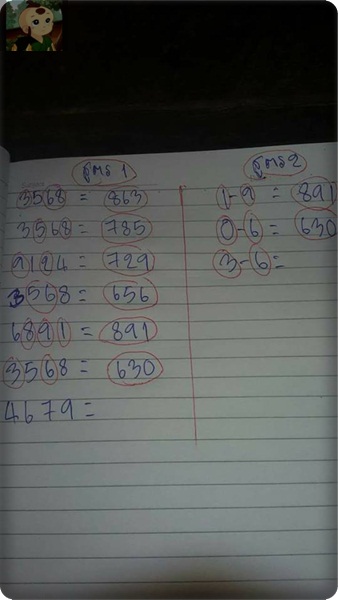 สูตร 1
3568 = 863
3568 = 785
9124 = 729
3568 = 656
6891 = 891
3568 = 630
4679 =
สูตร 2
1-9 = 891
0-6 = 630
3-6 =